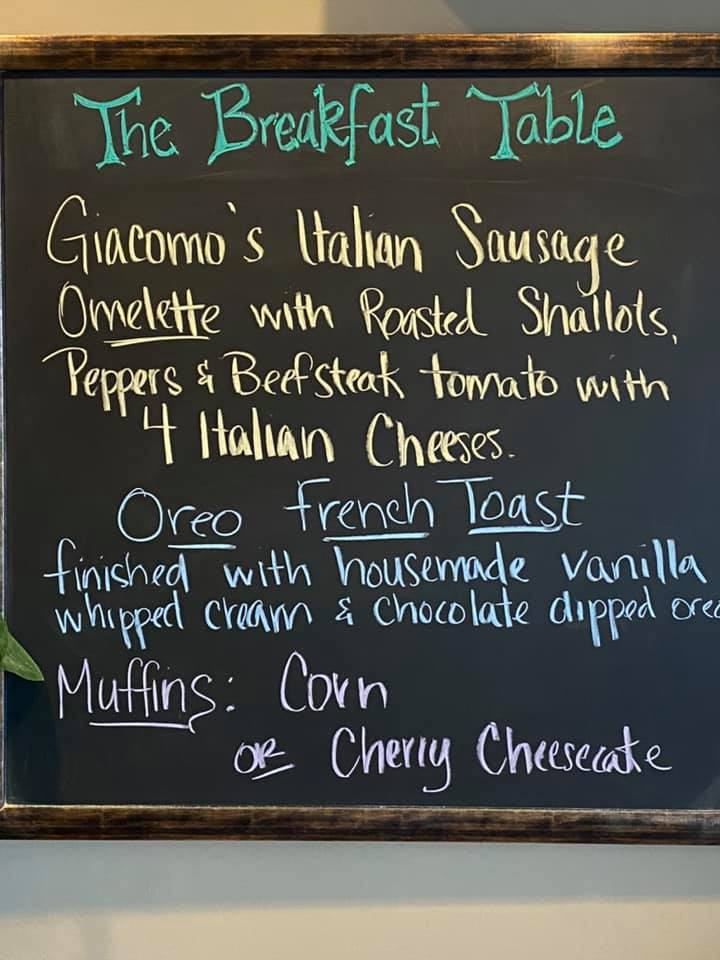 The Breakfast Table
Giacomo's Italian Sausage
Omelette with Roasted Shallots,
Peppers & Beefsteak tomato with
4 Italian Cheeses.
Oreo French Toast
finished with housemade vanilla
whipped cream & chocolate dipped oreo
Muffins: Corn
OR Cherry Cheesecake